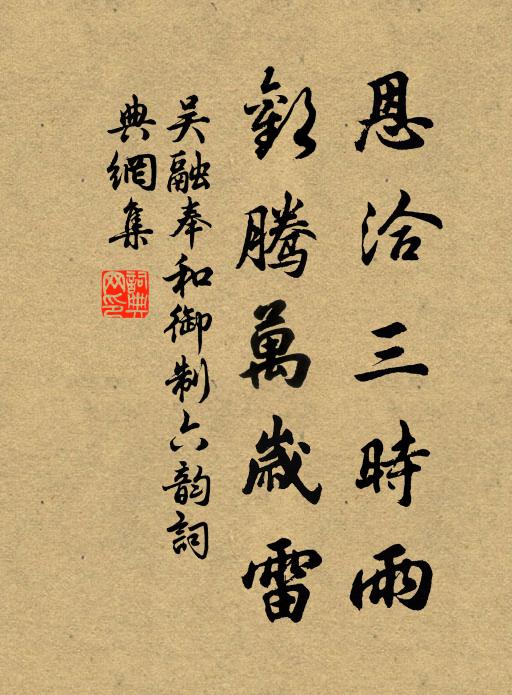 恩洽三時雨
歡騰萬歲雷
吴融奉和御制六韵詞
典網集
詞典網印